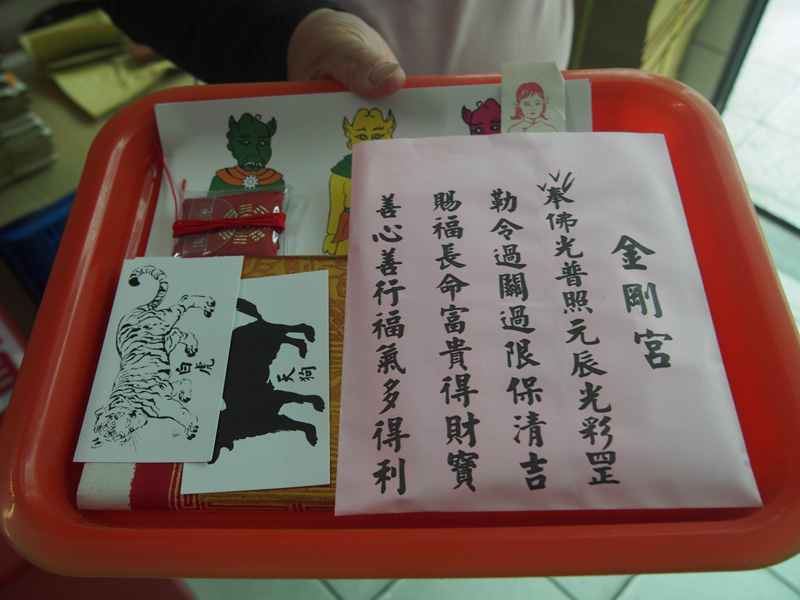 金剛宮
奉佛光普照元辰光彩罡
勒令過關過限保清吉
賜福長命富貴得財寶
善心善行福氣多得利
白虎
天狗